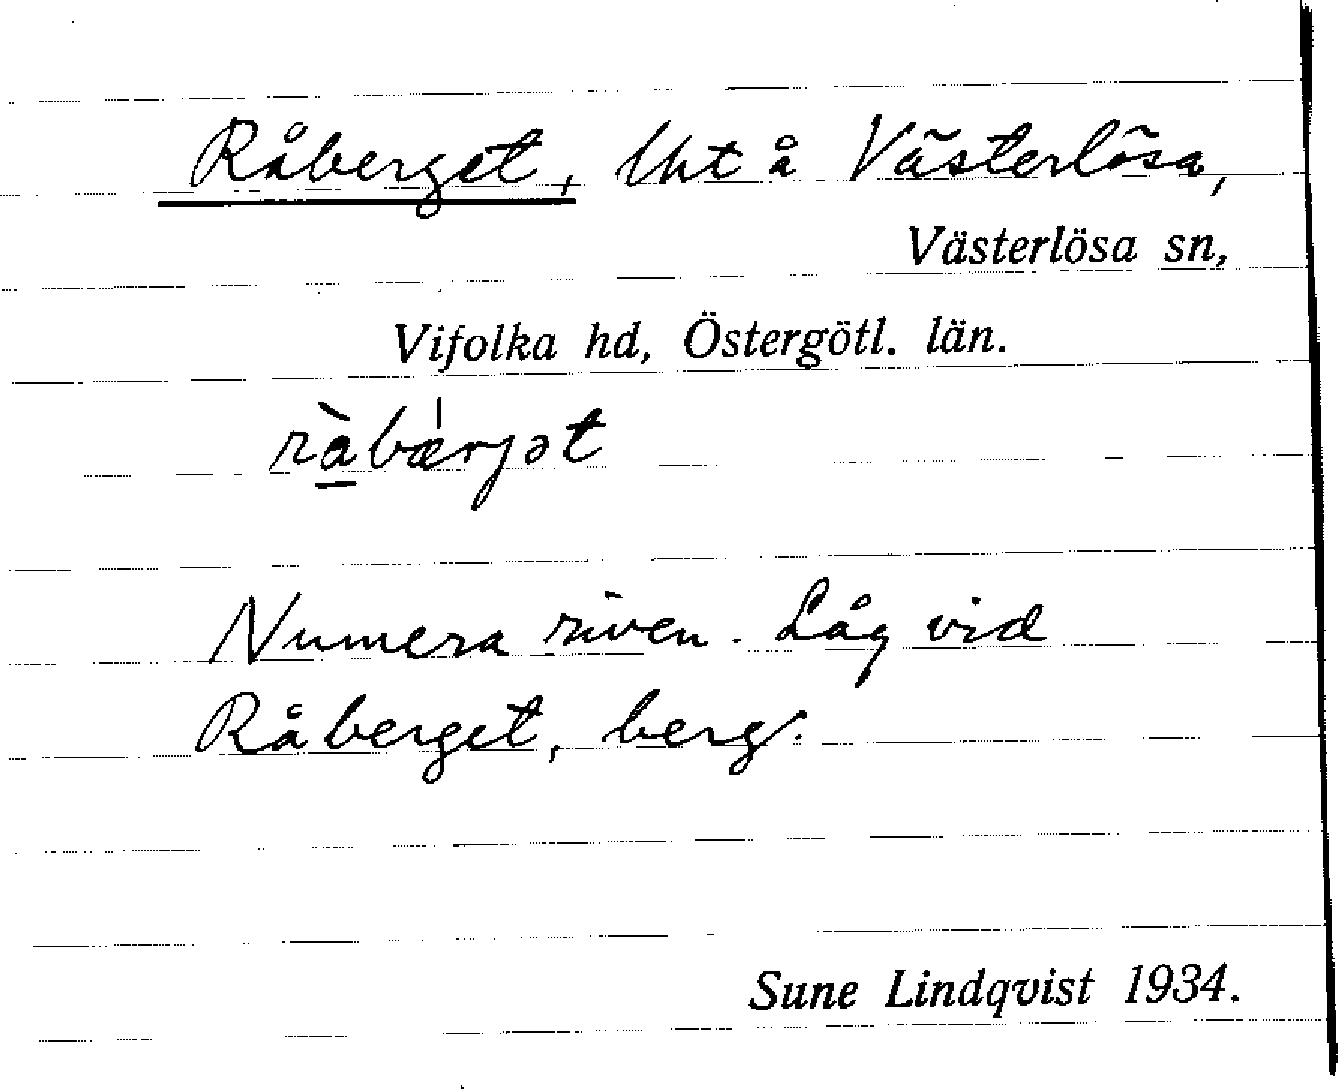 Råberget, lht å Västerlösa,
Västerlösa sn,
Vifolka hd, Östergötl. län.
rà̱bæ̍rjət
Numera riven. Låg vid
Råberget, berg.
Sune Lindqvist 1934.